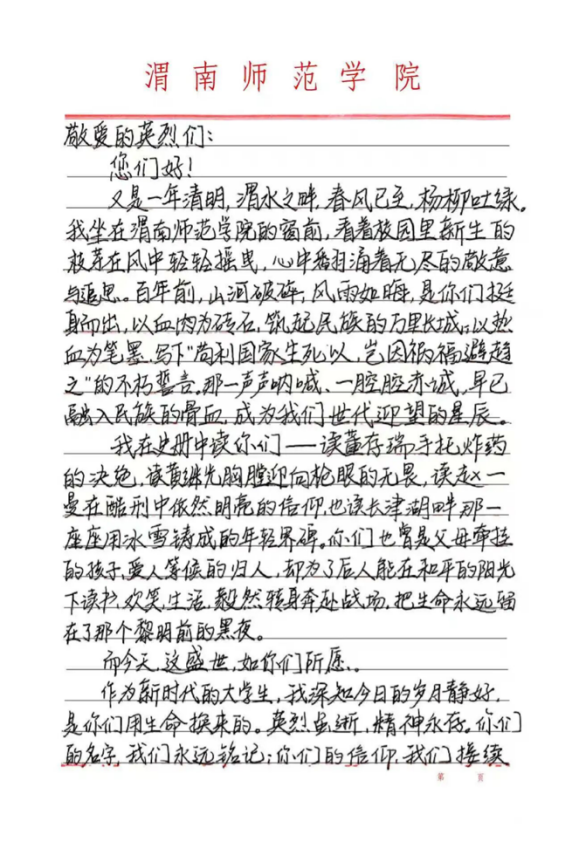 渭南师范学院
敬爱的英烈们：
您们好！
又是一年清明，渭水之畔，春风已至，杨柳吐绿。
我坐在渭南师范学院的窗前，看着校园里新生的
枝芽在风中轻轻摇曳，心中翻涌着无尽的敬意
与追思。百年前，山河破碎，风雨如晦，是你们挺
身而出，以血肉为砖石，筑起民族的万里长城；以热
血为笔墨，写下"苟利国家生死以，岂因祸福避趋
之"的不朽誓言。那一声声呐喊、一腔腔赤诚，早已
融入民族的骨血，成为我们世代仰望的星辰。
我在史册中读你们——读董存瑞手托炸药
的决绝，读黄继光胸膛迎向枪眼的无畏，读赵一
曼在酷刑中依然明亮的信仰，也读长津湖畔那一
座座用冰雪铸成的年轻界碑。你们也曾是父母牵挂
的孩子，爱人等候的归人，却为了后人能在和平的阳光
下读书、欢笑、生活，毅然转身奔赴战场，把生命永远留
在了那个黎明前的黑夜。
而今天，这盛世，如你们所愿。
作为新时代的大学生，我深知今日的岁月静好，
是你们用生命换来的。英烈虽逝，精神永存。你们
的名字，我们永远铭记；你们的信仰，我们接续
第 页